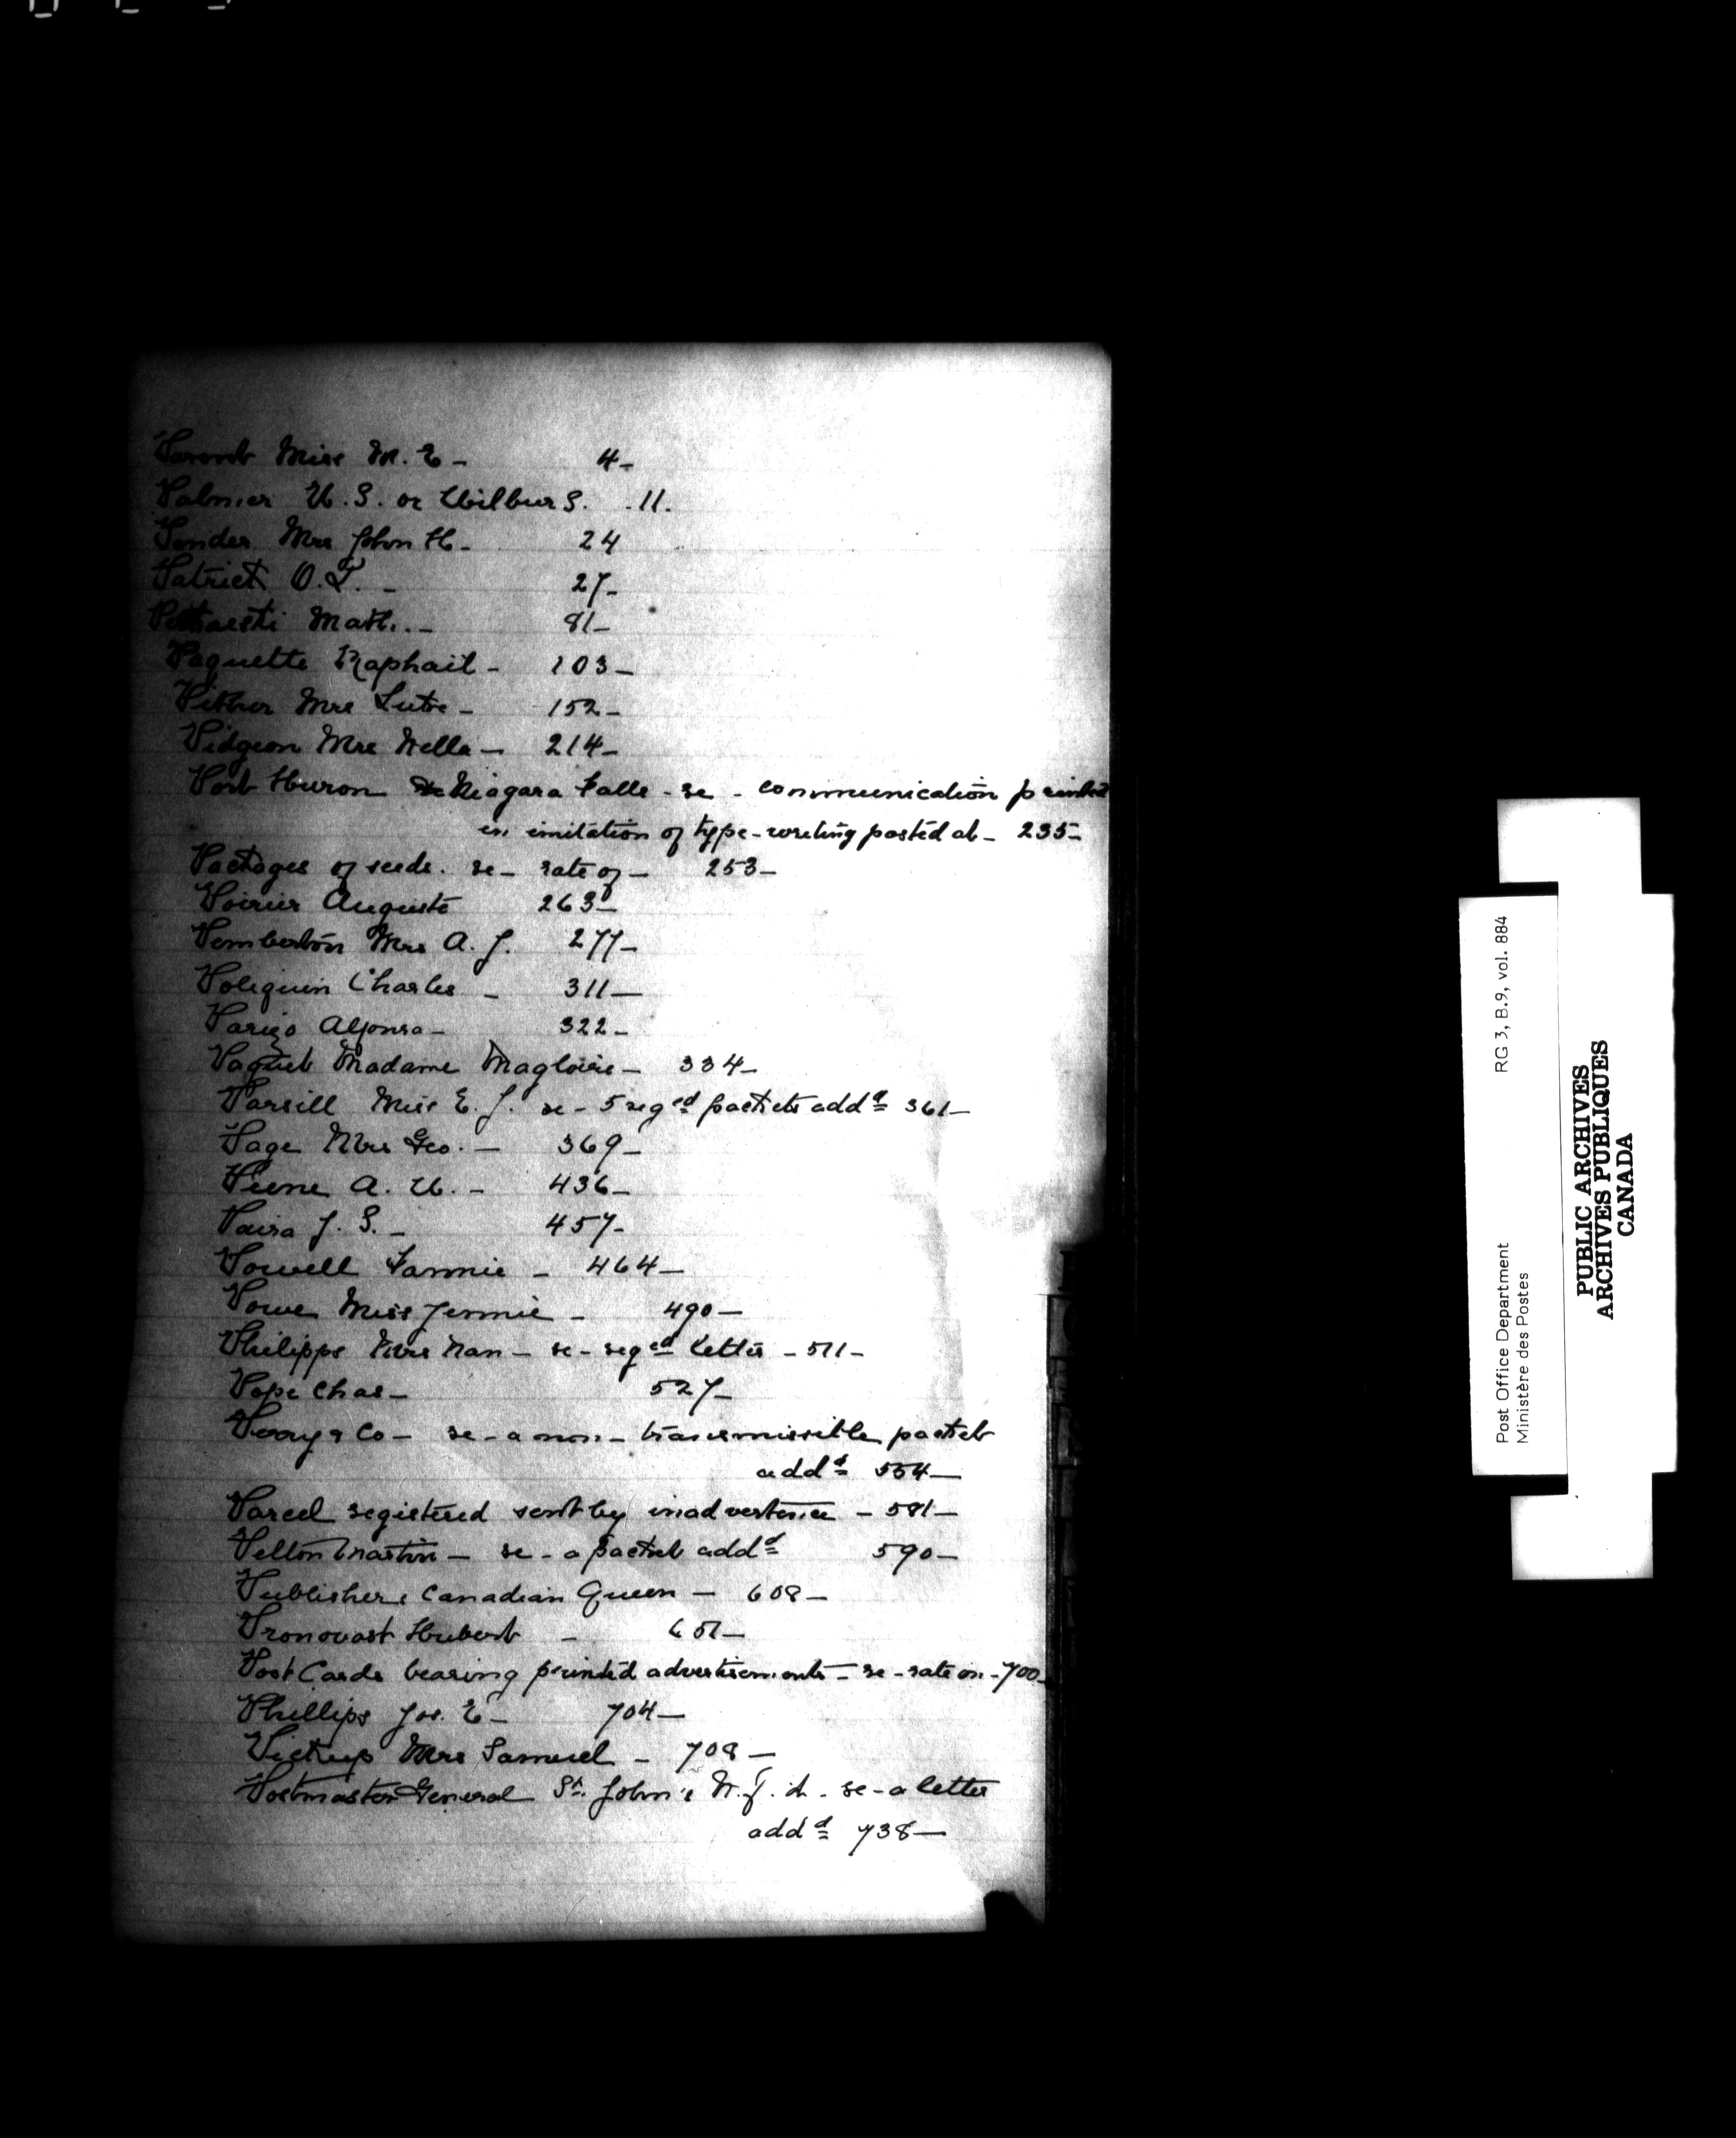 Parent Miss M. E - 4-
Palmer W. S. or Wilbur S. .11.
Ponder Mrs John H. - 24
Patrick O. T. - 27-
Math. - 81-
Paquette Raphail - 103-
Pither Mrs - 152-
Pidgeon Mrs Nella - 214-
Port Huron & Niagara Falls - re - communication printed
in imitation of type-writing posted at - 235-
Packages of seeds. re - rate of - 253-
Poirier Auguste 263-
Pemberton Mrs A. J. 277-
Poliquin Charles - 311-
Parizo Alfonso - 322-
Paquet Madame Magloire - 334-
Parsill Miss E. J. re - 5 reged packets addd 361-
Page Mrs Geo. - 369-
A. W. - 436-
J. S. - 457-
Powell Fannie - 464-
Powe Miss Jennie - 490-
Philipps Mrs Nan - re - reged letter - 511-
Pope Chas - 527-
Perry & Co - re - a non-transmissible packet
addd 554-
Parcel registered sent by inadvertence - 581-
Pellon Martin - re - a packet addd 590-
Publishers Canadian Queen - 608-
Pronovost Hubert - 651-
Post Cards bearing printed advertisements - re - rate on - 700-
Phillips Jos. E - 704-
Mrs Samuel - 708-
Postmaster General St. John's N.f.d. re - a letter
addd 738-
Post Office Department RG 3, B.9, vol. 884
Ministère des Postes
PUBLIC ARCHIVES
ARCHIVES PUBLIQUES
CANADA